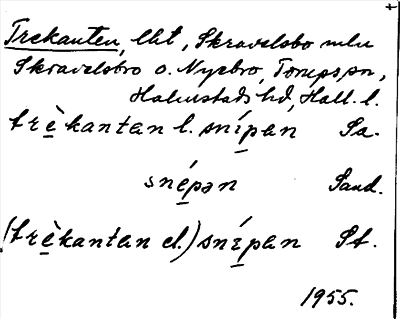 Trekanten, lht, Skravelsbo mln
Skravelsbro o. Nyebro, Tönnersjön,
Halmstads hd, Hall. l.
trè̲kantan l. sní̲pan Sa.
sné̲pən Sand.
(trè̲kantan el.) sní̲pan St.
1955.